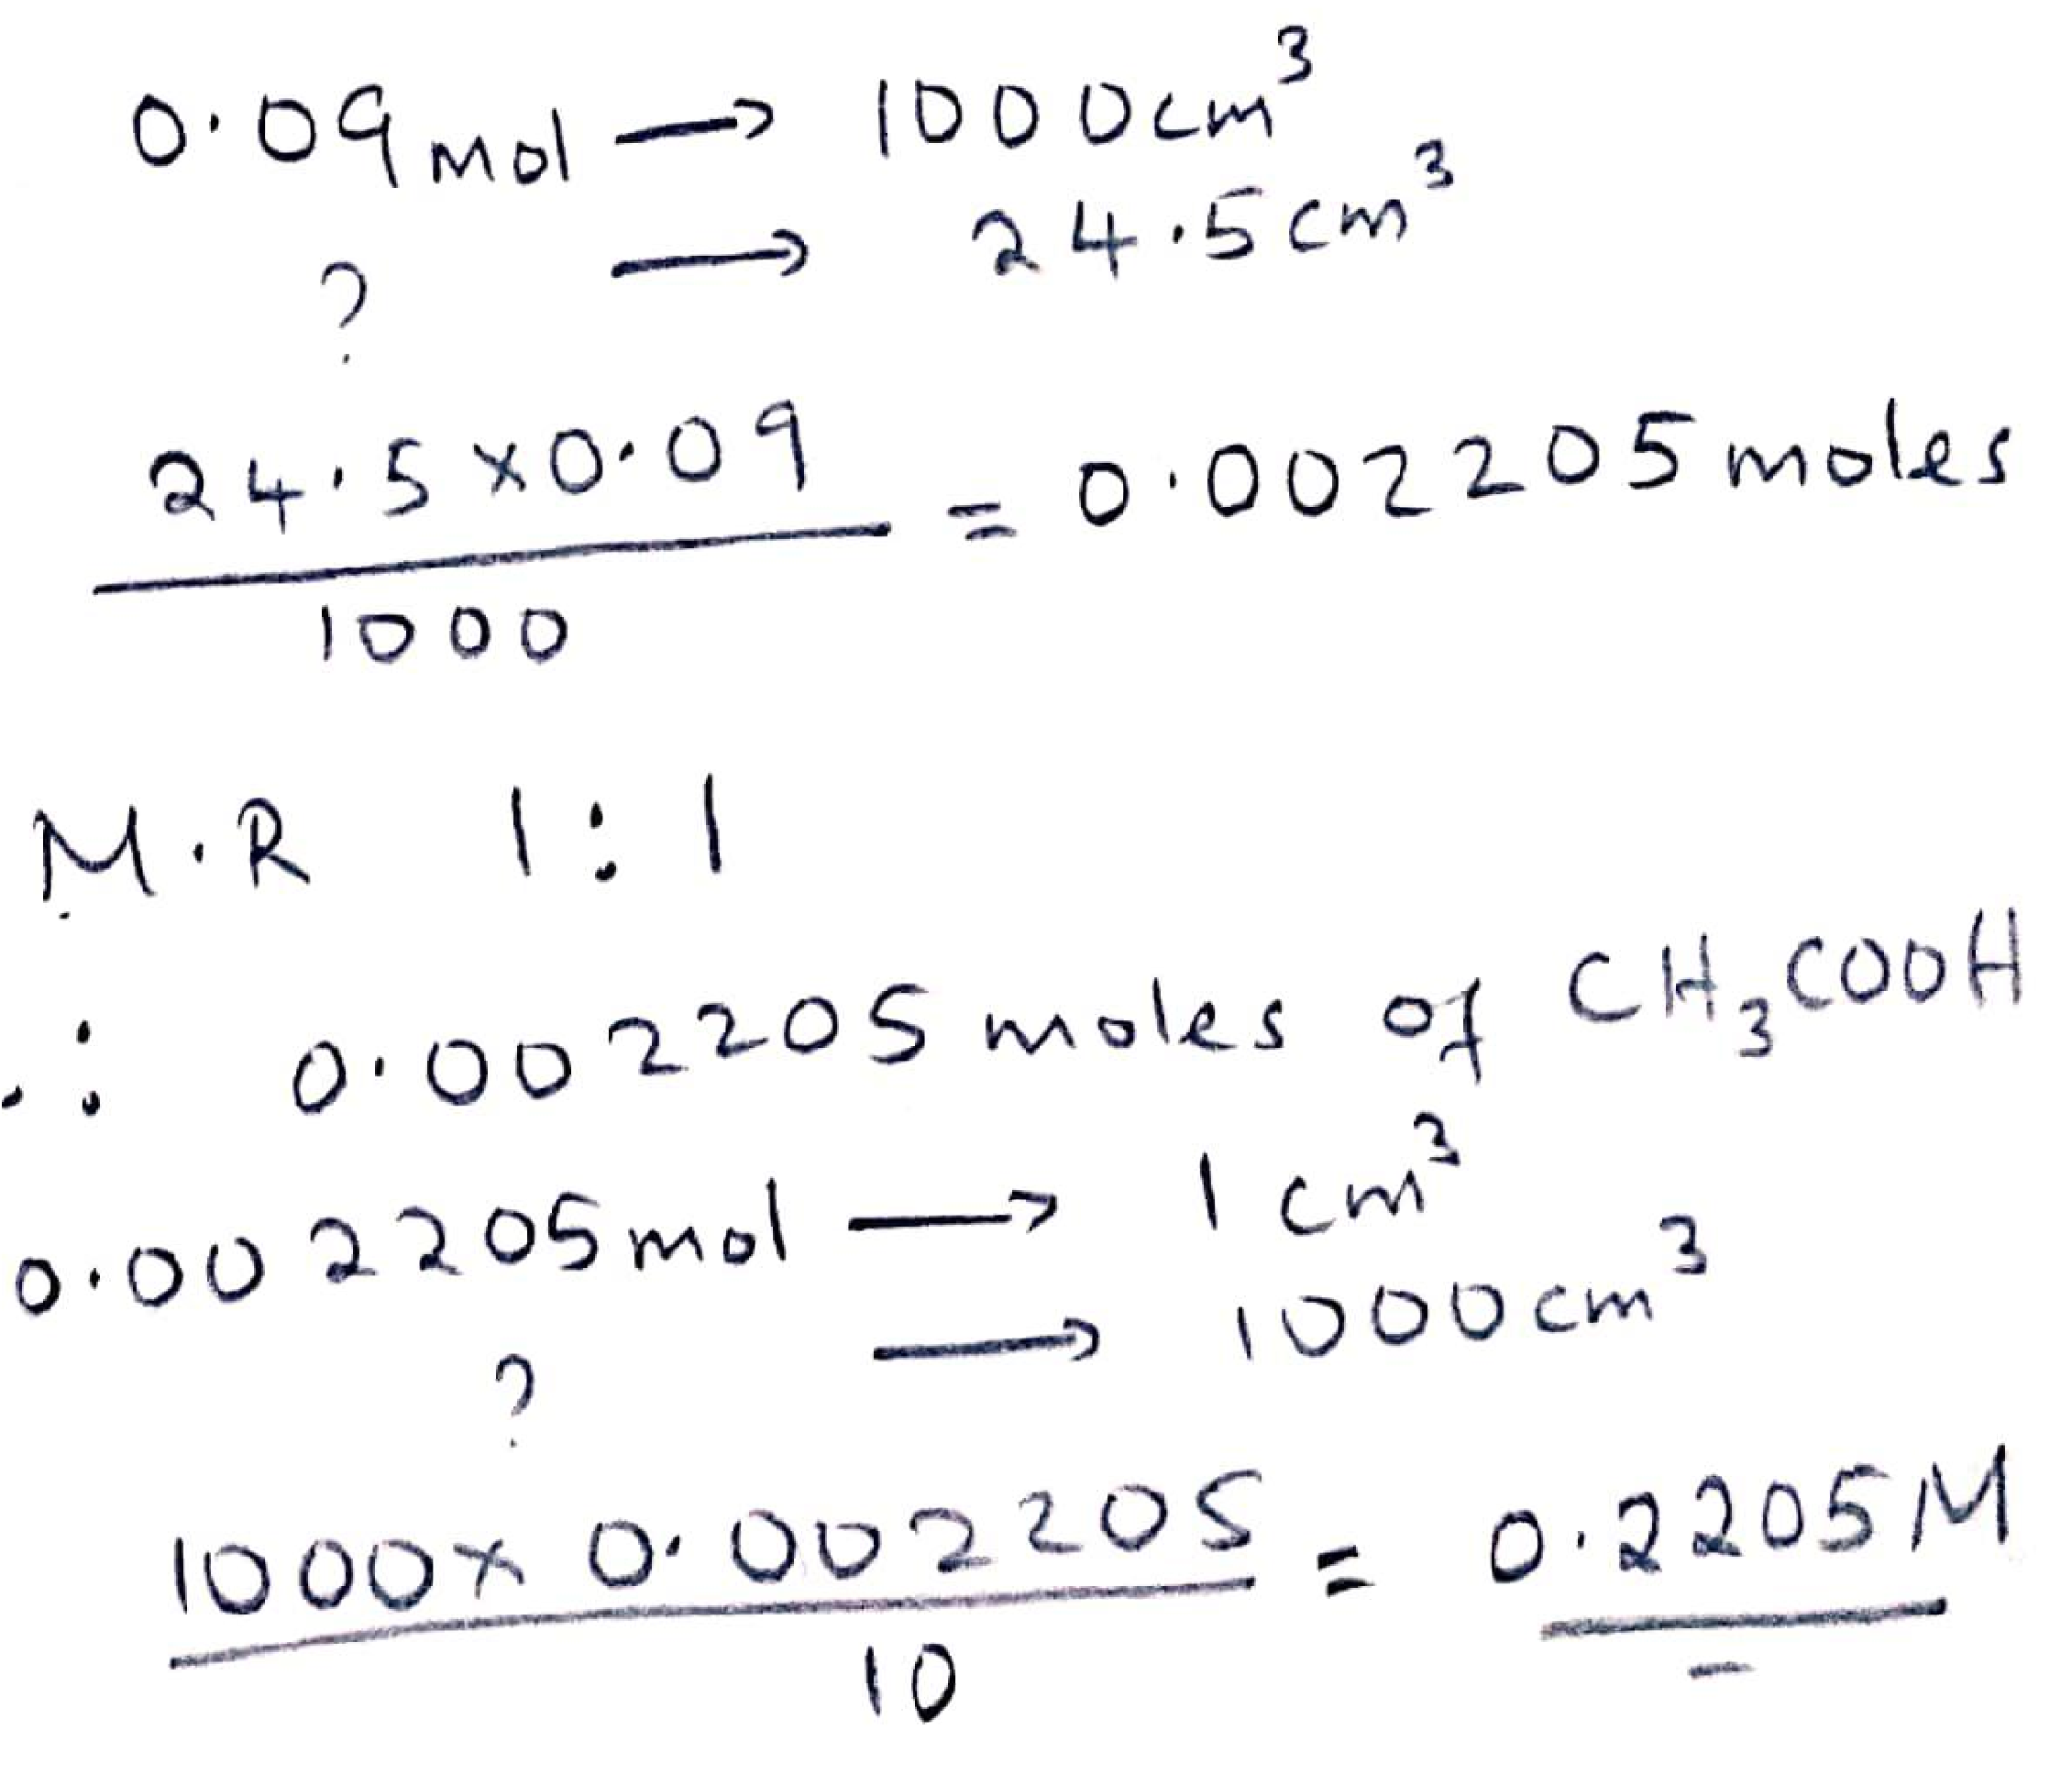 0.09 mol → 1000 cm³
? → 24.5 cm³
24.5 × 0.09 = 0.002205 moles
1000
M.R 1:1
∴ 0.002205 moles of CH₃COOH
0.002205 mol → 1 cm³
? → 1000 cm³
1000 × 0.002205 = 0.2205 M
10